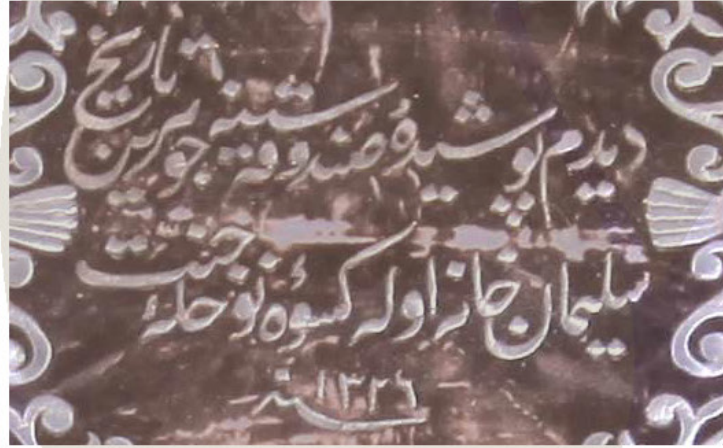 ديدم پوشيدهٔ صندوقه سنه جوهرين تاريخ
سليمان خانه اوله كسوهٔ نو حلهٔ جنت
سنه ١٣٢٦